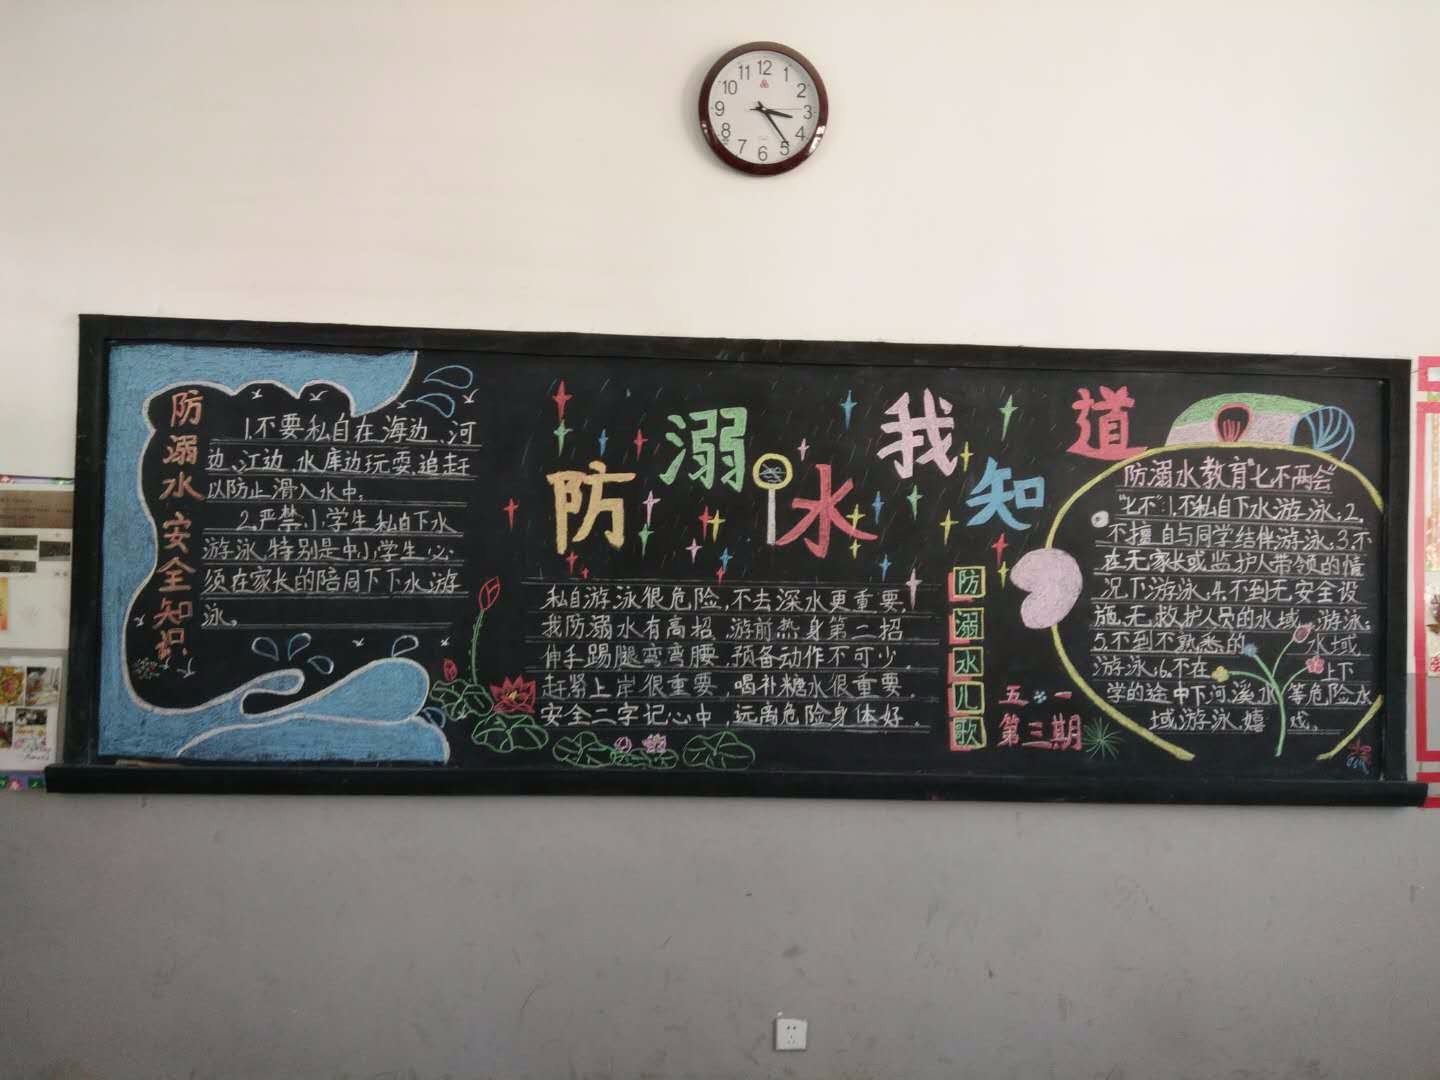 12
1
2
3
4
5
6
7
8
9
10
11
防溺水我知道
防溺水安全知识
1.不要私自在海边、河
边、江边、水库边玩耍、追赶
以防止滑入水中。
2.严禁小学生私自下水
游泳,特别是中小学生必
须在家长的陪同下下水游
泳。
私自游泳很危险,不去深水更重要,
我防溺水有高招,游前热身第二招
伸手踢腿弯弯腰,预备动作不可少,
赶紧上岸很重要,喝补糖水很重要,
安全二字记心中,远离危险身体好.
防溺水儿歌
五 一
第三期
防溺水教育“七不两会”
“七不”:1.不私自下水游泳;2.
不擅自与同学结伴游泳;3.不
在无家长或监护人带领的情
况下游泳;4.不到无安全设
施、无救护人员的水域 游泳;
5.不到不熟悉的 水域
游泳;6.不在 上下
学的途中下河溪水 等危险水
域游泳、嬉 戏。